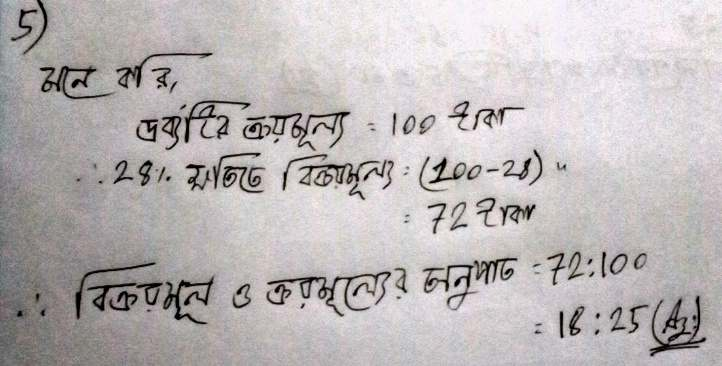 5)
মনে করি,
দ্রব্যটির ক্রয়মূল্য = 100 টাকা
∴ 28% ক্ষতিতে বিক্রয়মূল্য = (100-28) "
= 72 টাকা
∴ বিক্রয়মূল্য ও ক্রয়মূল্যের অনুপাত = 72:100
= 18:25 (Ans)